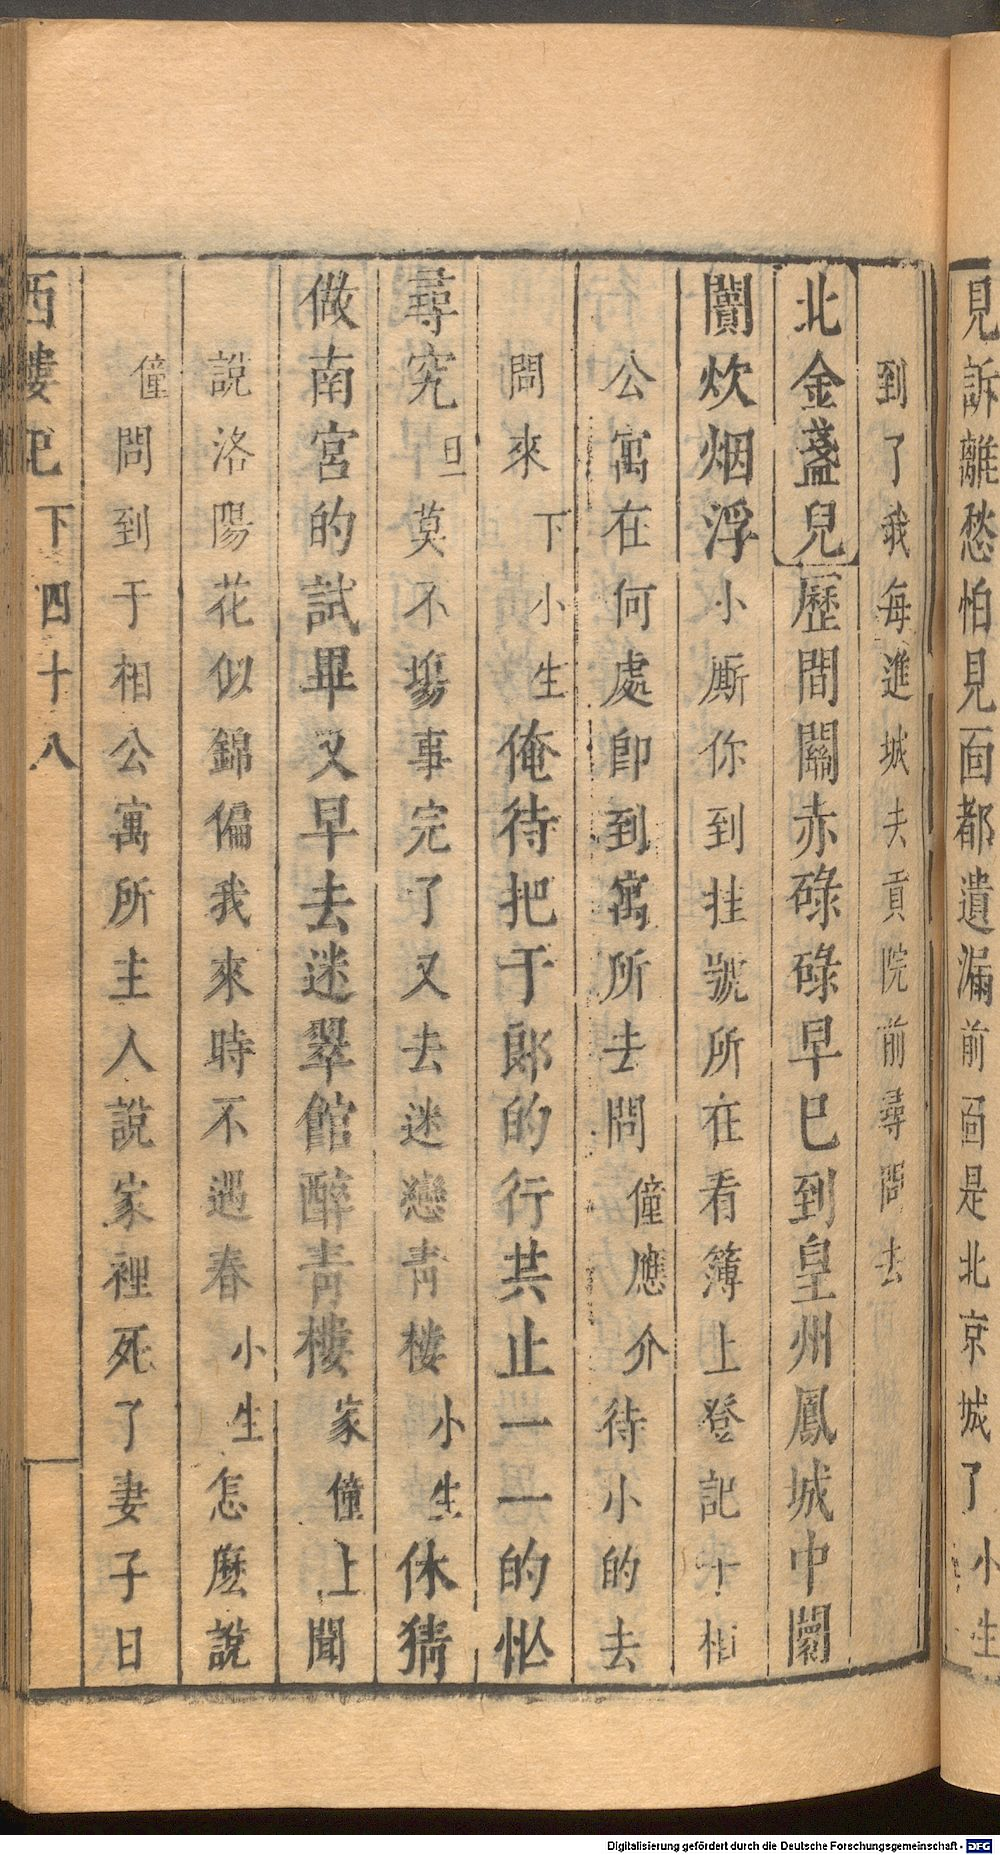 見訴離愁怕見面都遺漏前面是北京城了小生
到了我每進城去貢院前尋問去
北金盞兒歷間關赤碌碌早巳到皇州鳳城中闤
闠炊烟浮小厮你到挂號所在看簿上登記于相
公寓在何處卽到寓所去問僮應介待小的去
問來下小生俺待把于郎的行共止一一的忪
尋究旦莫不塲事完了又去迷戀靑樓小生休猜
做南宮的試畢又早去迷翠館醉靑樓家僮上聞
說洛陽花似錦偏我來時不遇春小生怎麽說
僮問到于相公寓所主人說家裡死了妻子日
西樓記 下 四十八
Digitalisierung gefördert durch die Deutsche Forschungsgemeinschaft - DFG